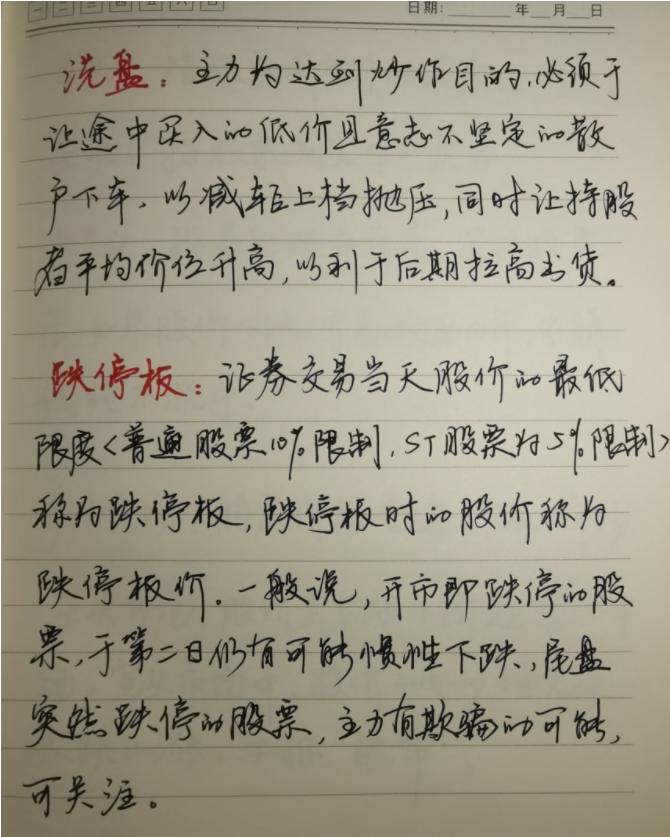 一 二 三 四 五 六 日
日期: 年 月 日
洗盘：主力为达到炒作目的，必须于
让途中买入的低价且意志不坚定的散
户下车，以减轻上档抛压，同时让持股
者平均价位升高，以利于后期拉高出货。
跌停板：证券交易当天股价的最低
限度<普通股票10%限制，ST股票为5%限制>
称为跌停板，跌停板时的股价称为
跌停板价。一般说，开市即跌停的股
票，于第二日仍有可能惯性下跌，尾盘
突然跌停的股票，主力有欺骗的可能，
可关注。